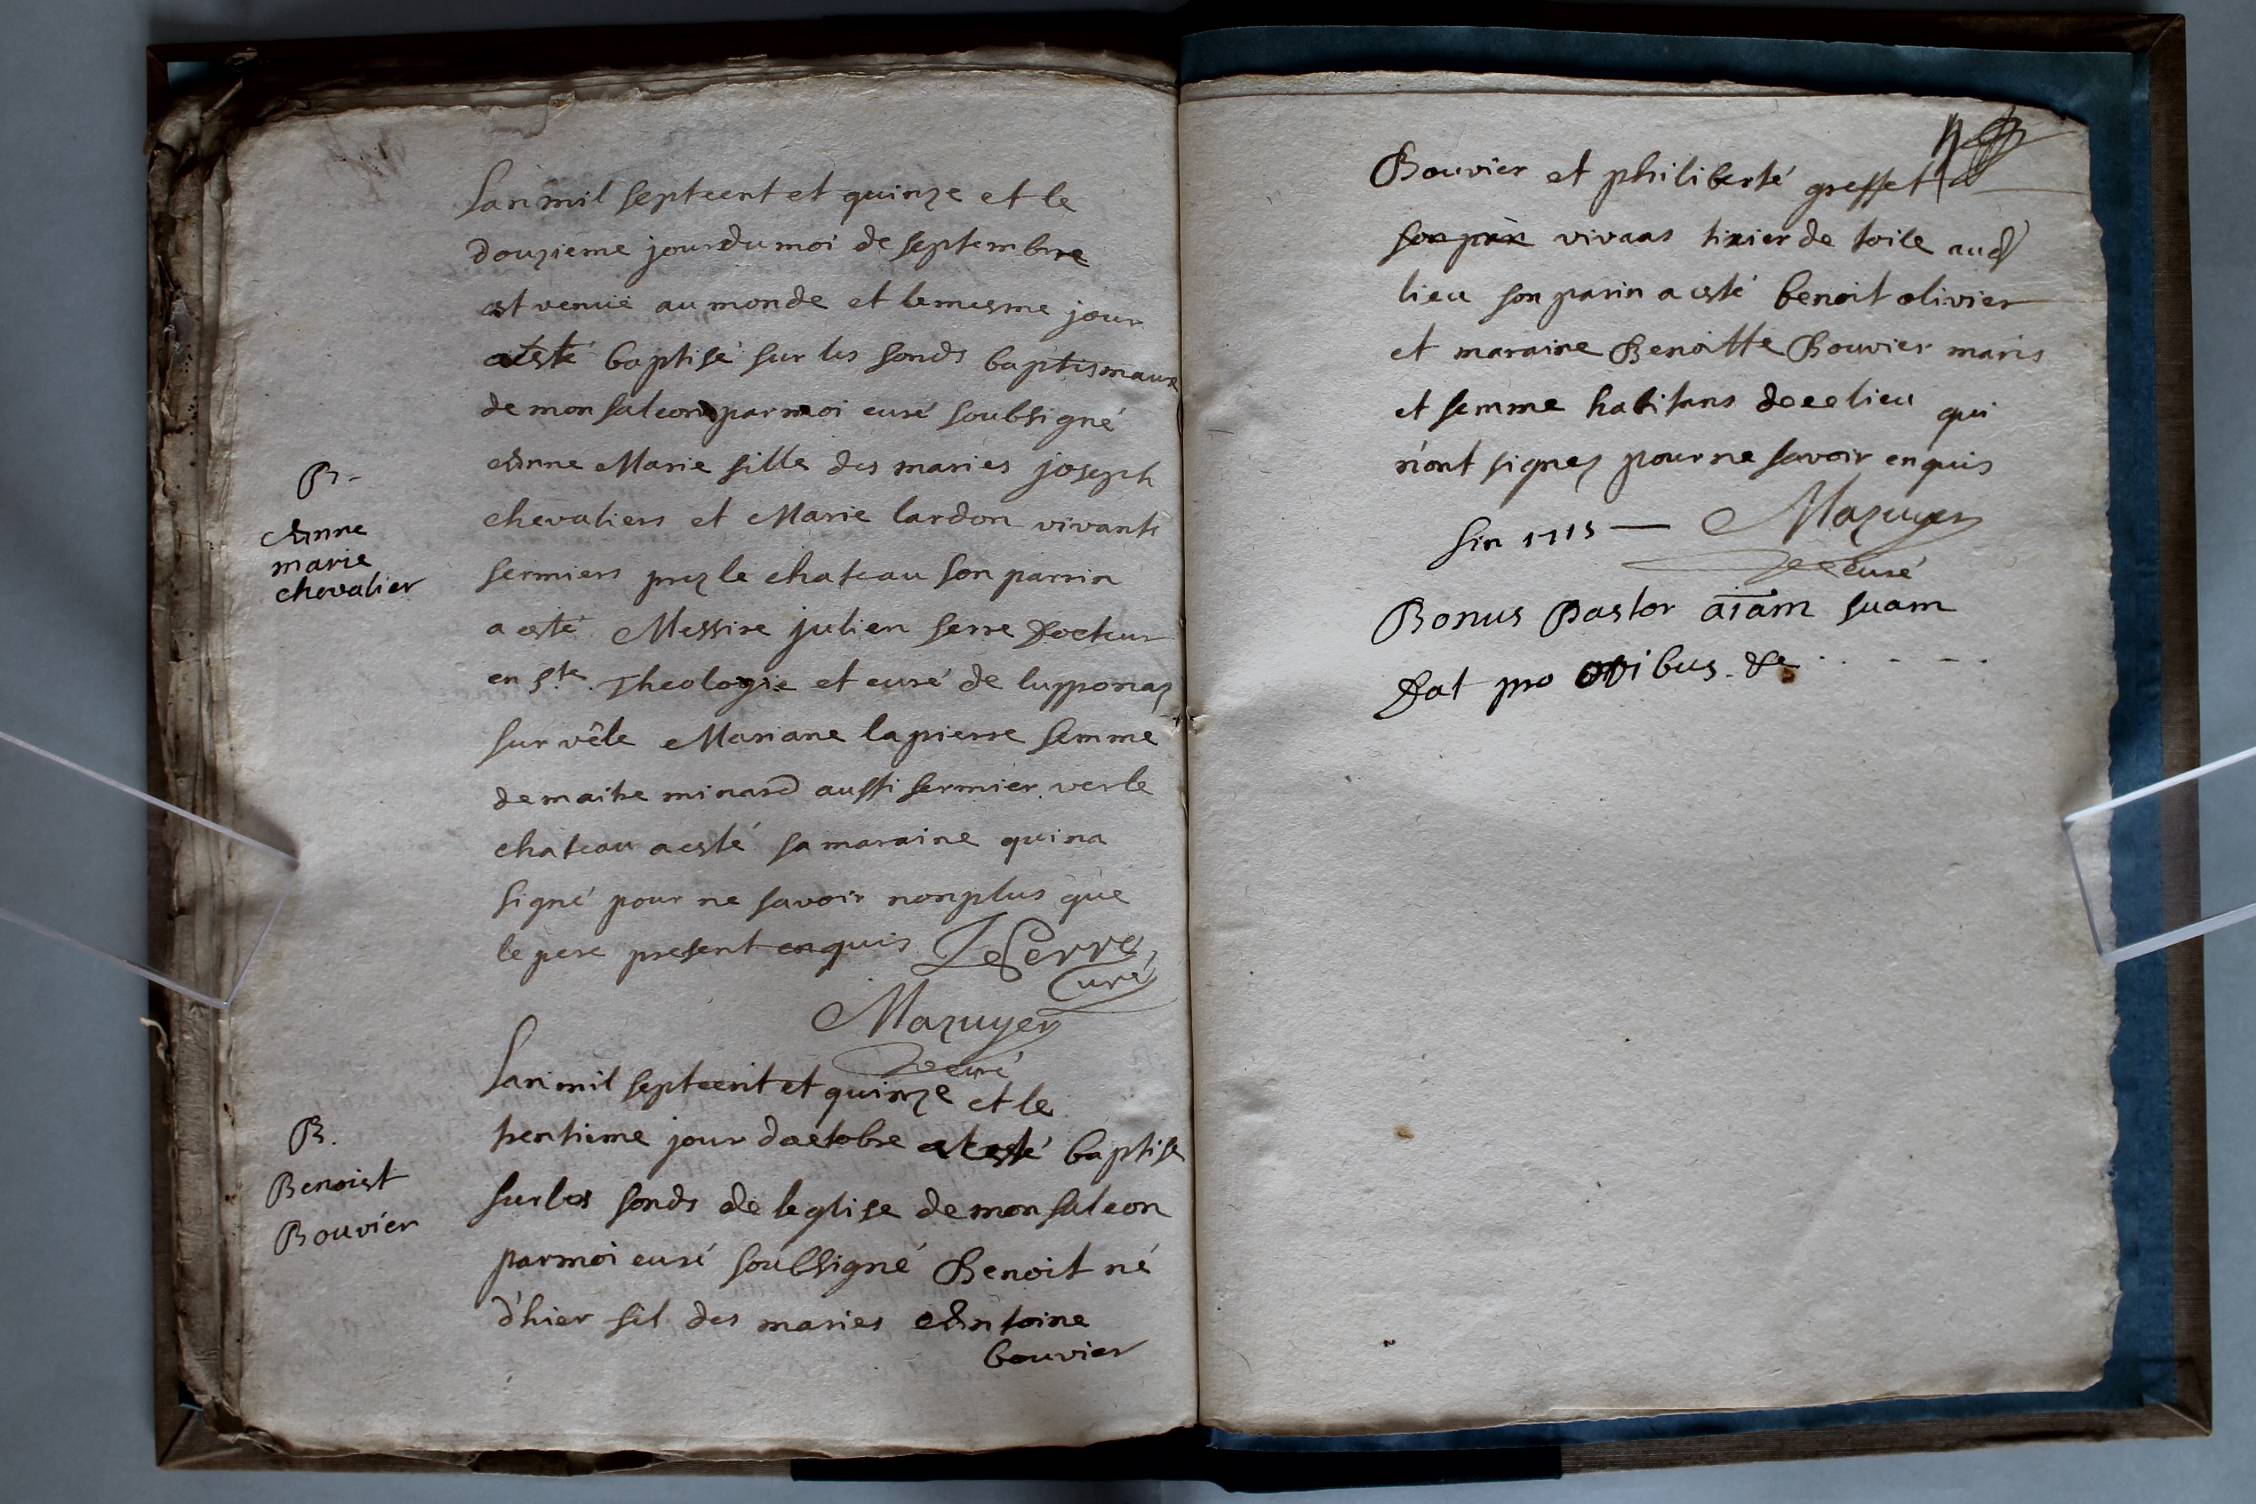 Lan mil septcent et quinze et le
douzieme jour du moi de septembre
est venüe au monde et lemesme jour
at esté baptisé sur les fonds baptismaux
de monfalcon par moi curé soubsigné
B.
Anne
marie
chevalier
Anne Marie fille des mariés joseph
chevaliers et Marie lardon vivants
fermiers prez le chateau son parrin
a esté Messire julien serre Docteur
en Ste. Theologie et curé de lupponaz
sur vêle Mariane lapierre femme
de maitre minard aussi fermier vers le
chateau a esté sa maraine qui na
signé pour ne savoir nonplus que
le pere present enquis J Serre
Curé
Mazuyer
curé
Lan mil septcent et quinze et le
trentieme jour doctobre at esté baptisé
B.
Benoist
Bouvier
sur les fonds de leglise de monfalcon
par moi curé soubsigné Benoit né
d'hier fil des mariés Antoine
bouvier
Bouvier et philiberte gresset
son parin vivans tixier de toile aud
lieu son parin a esté benoit olivier
et maraine Benoitte Bouvier mariés
et femme habitans dece lieu qui
n'ont signez pour ne savoir enquis
fin 1715 — Mazuyer
curé
Bonus Pastor aiam suam
Dat pro ovibus. &c